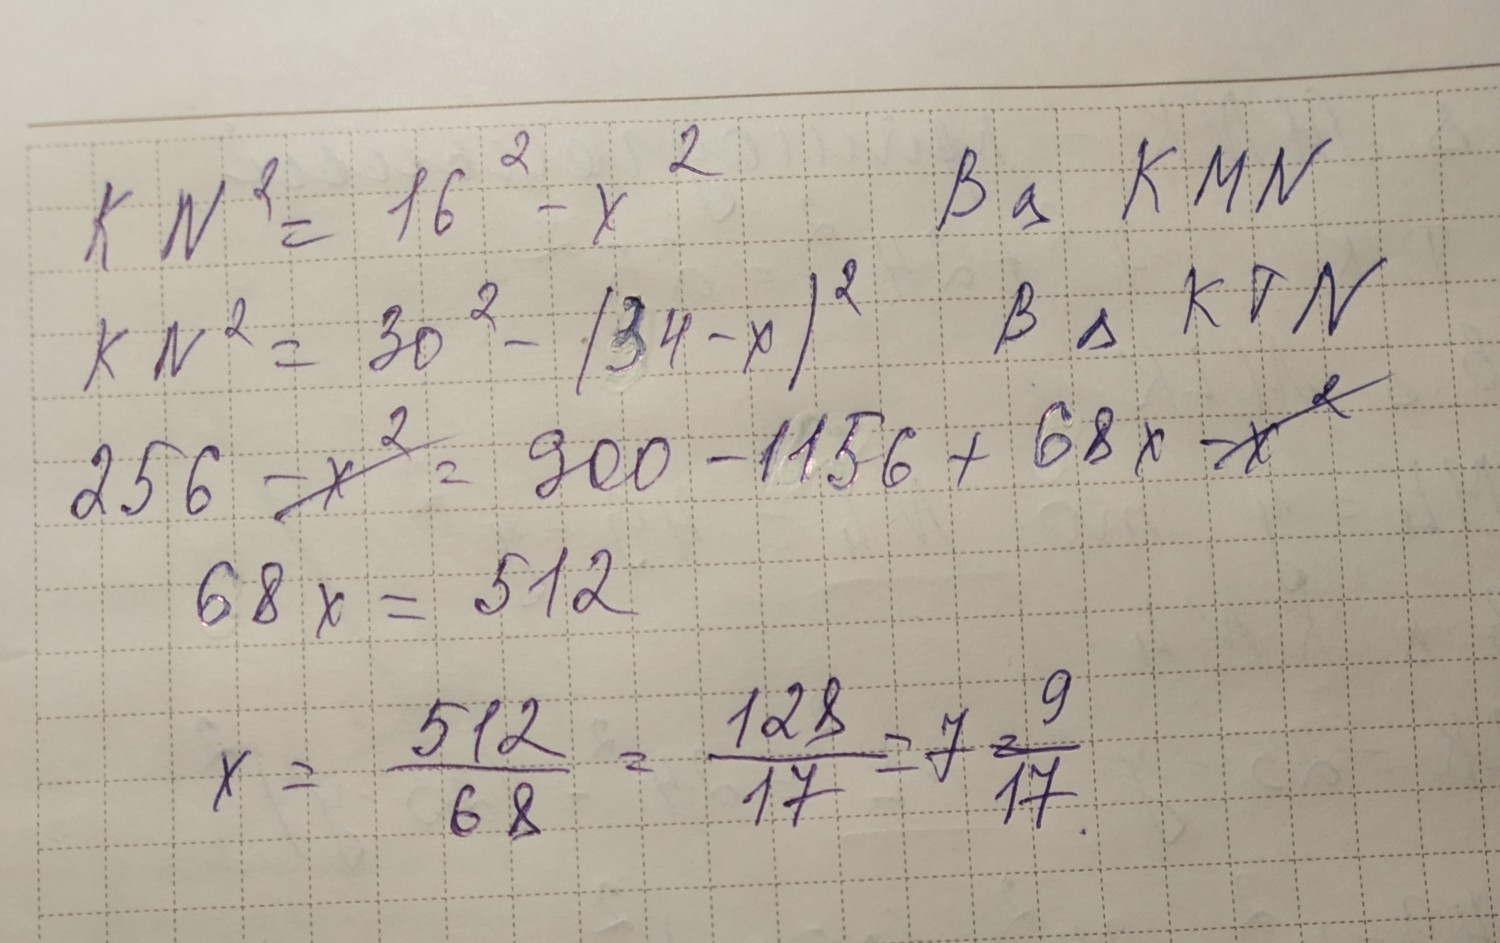 KN² = 16² - x² В △ KMN
KN² = 30² - (34 - x)² В △ KTN
256 - x² = 900 - 1156 + 68x - x²
68x = 512
x = 512/68 = 128/17 = 7 9/17.